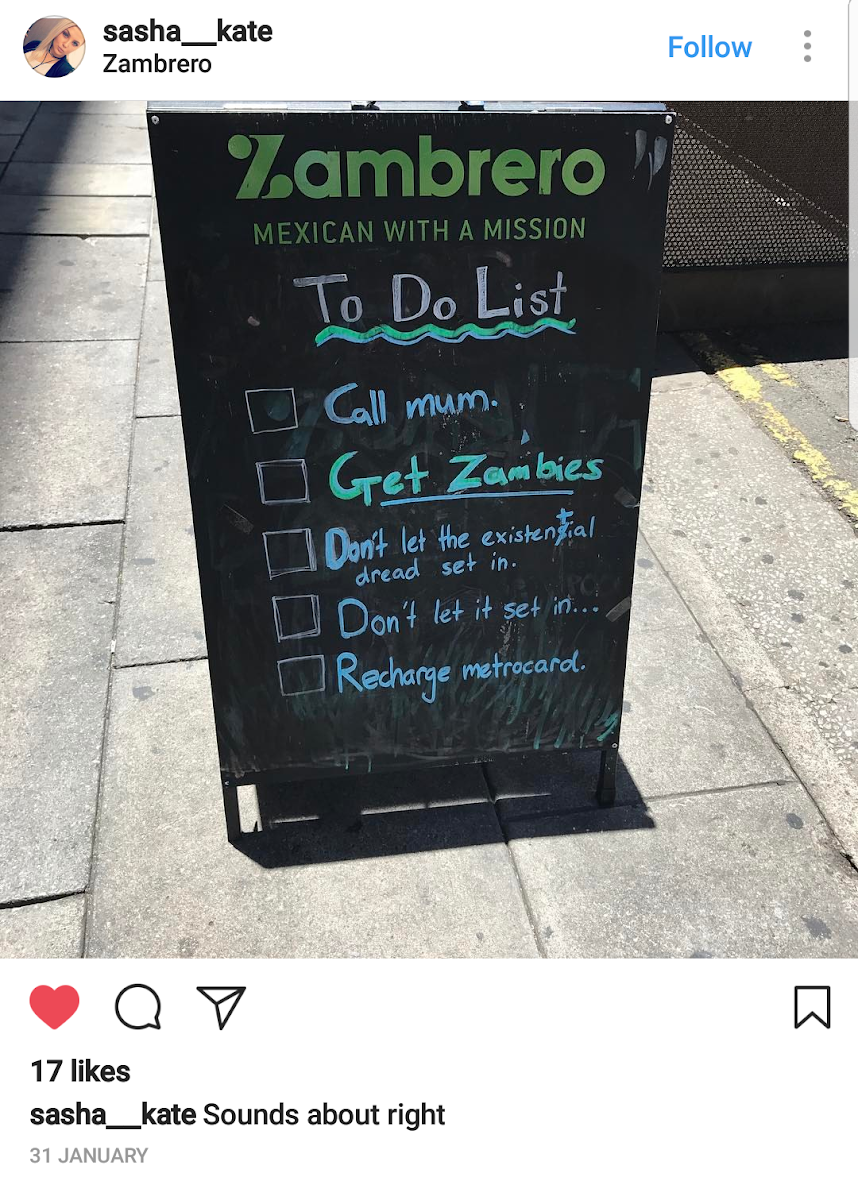 sasha__kate
Zambrero
Follow
Zambrero
MEXICAN WITH A MISSION
To Do List
Call mum.
Get Zambies
Don't let the existential
dread set in.
Don't let it set in...
Recharge metrocard.
17 likes
sasha__kate Sounds about right
31 JANUARY